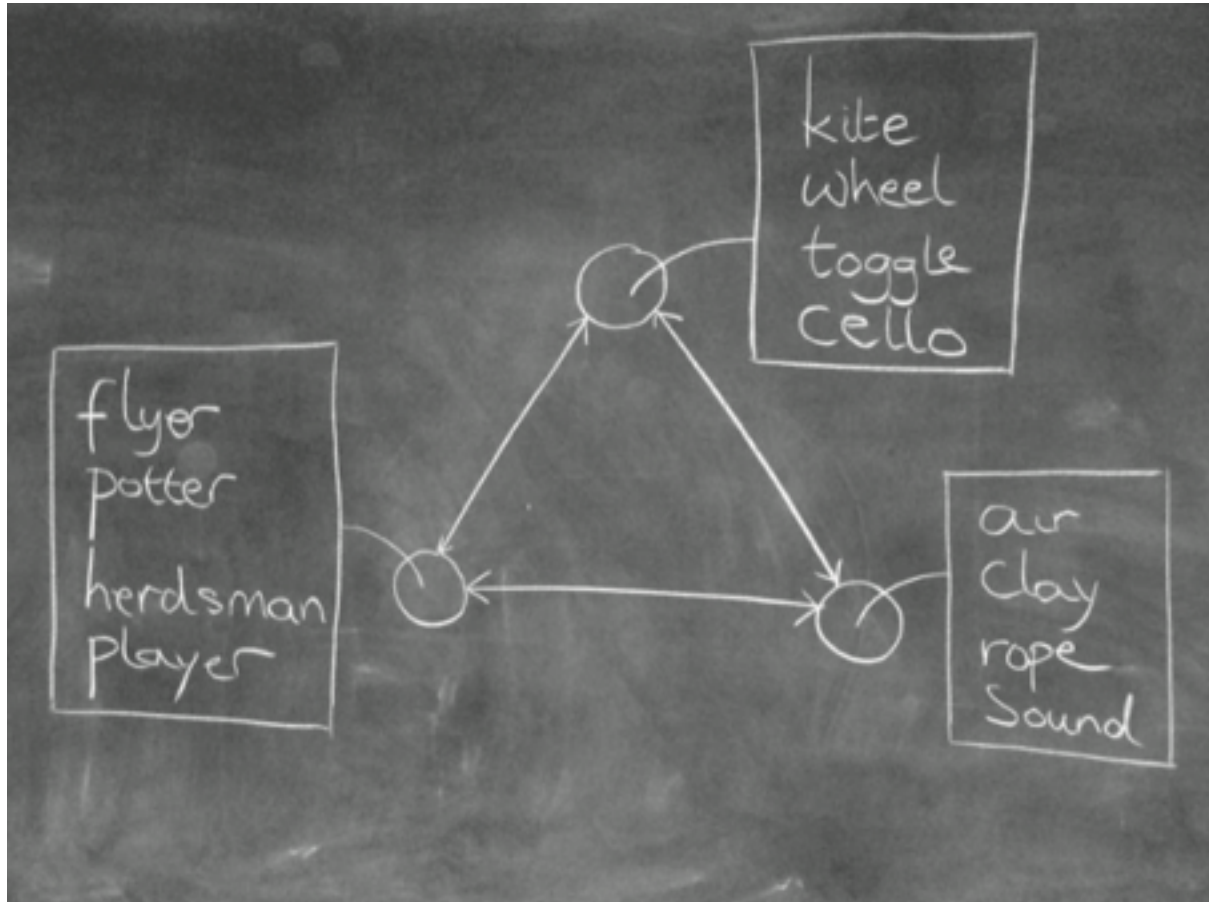 kite
wheel
toggle
Cello
flyer
potter
herdsman
player
air
Clay
rope
Sound